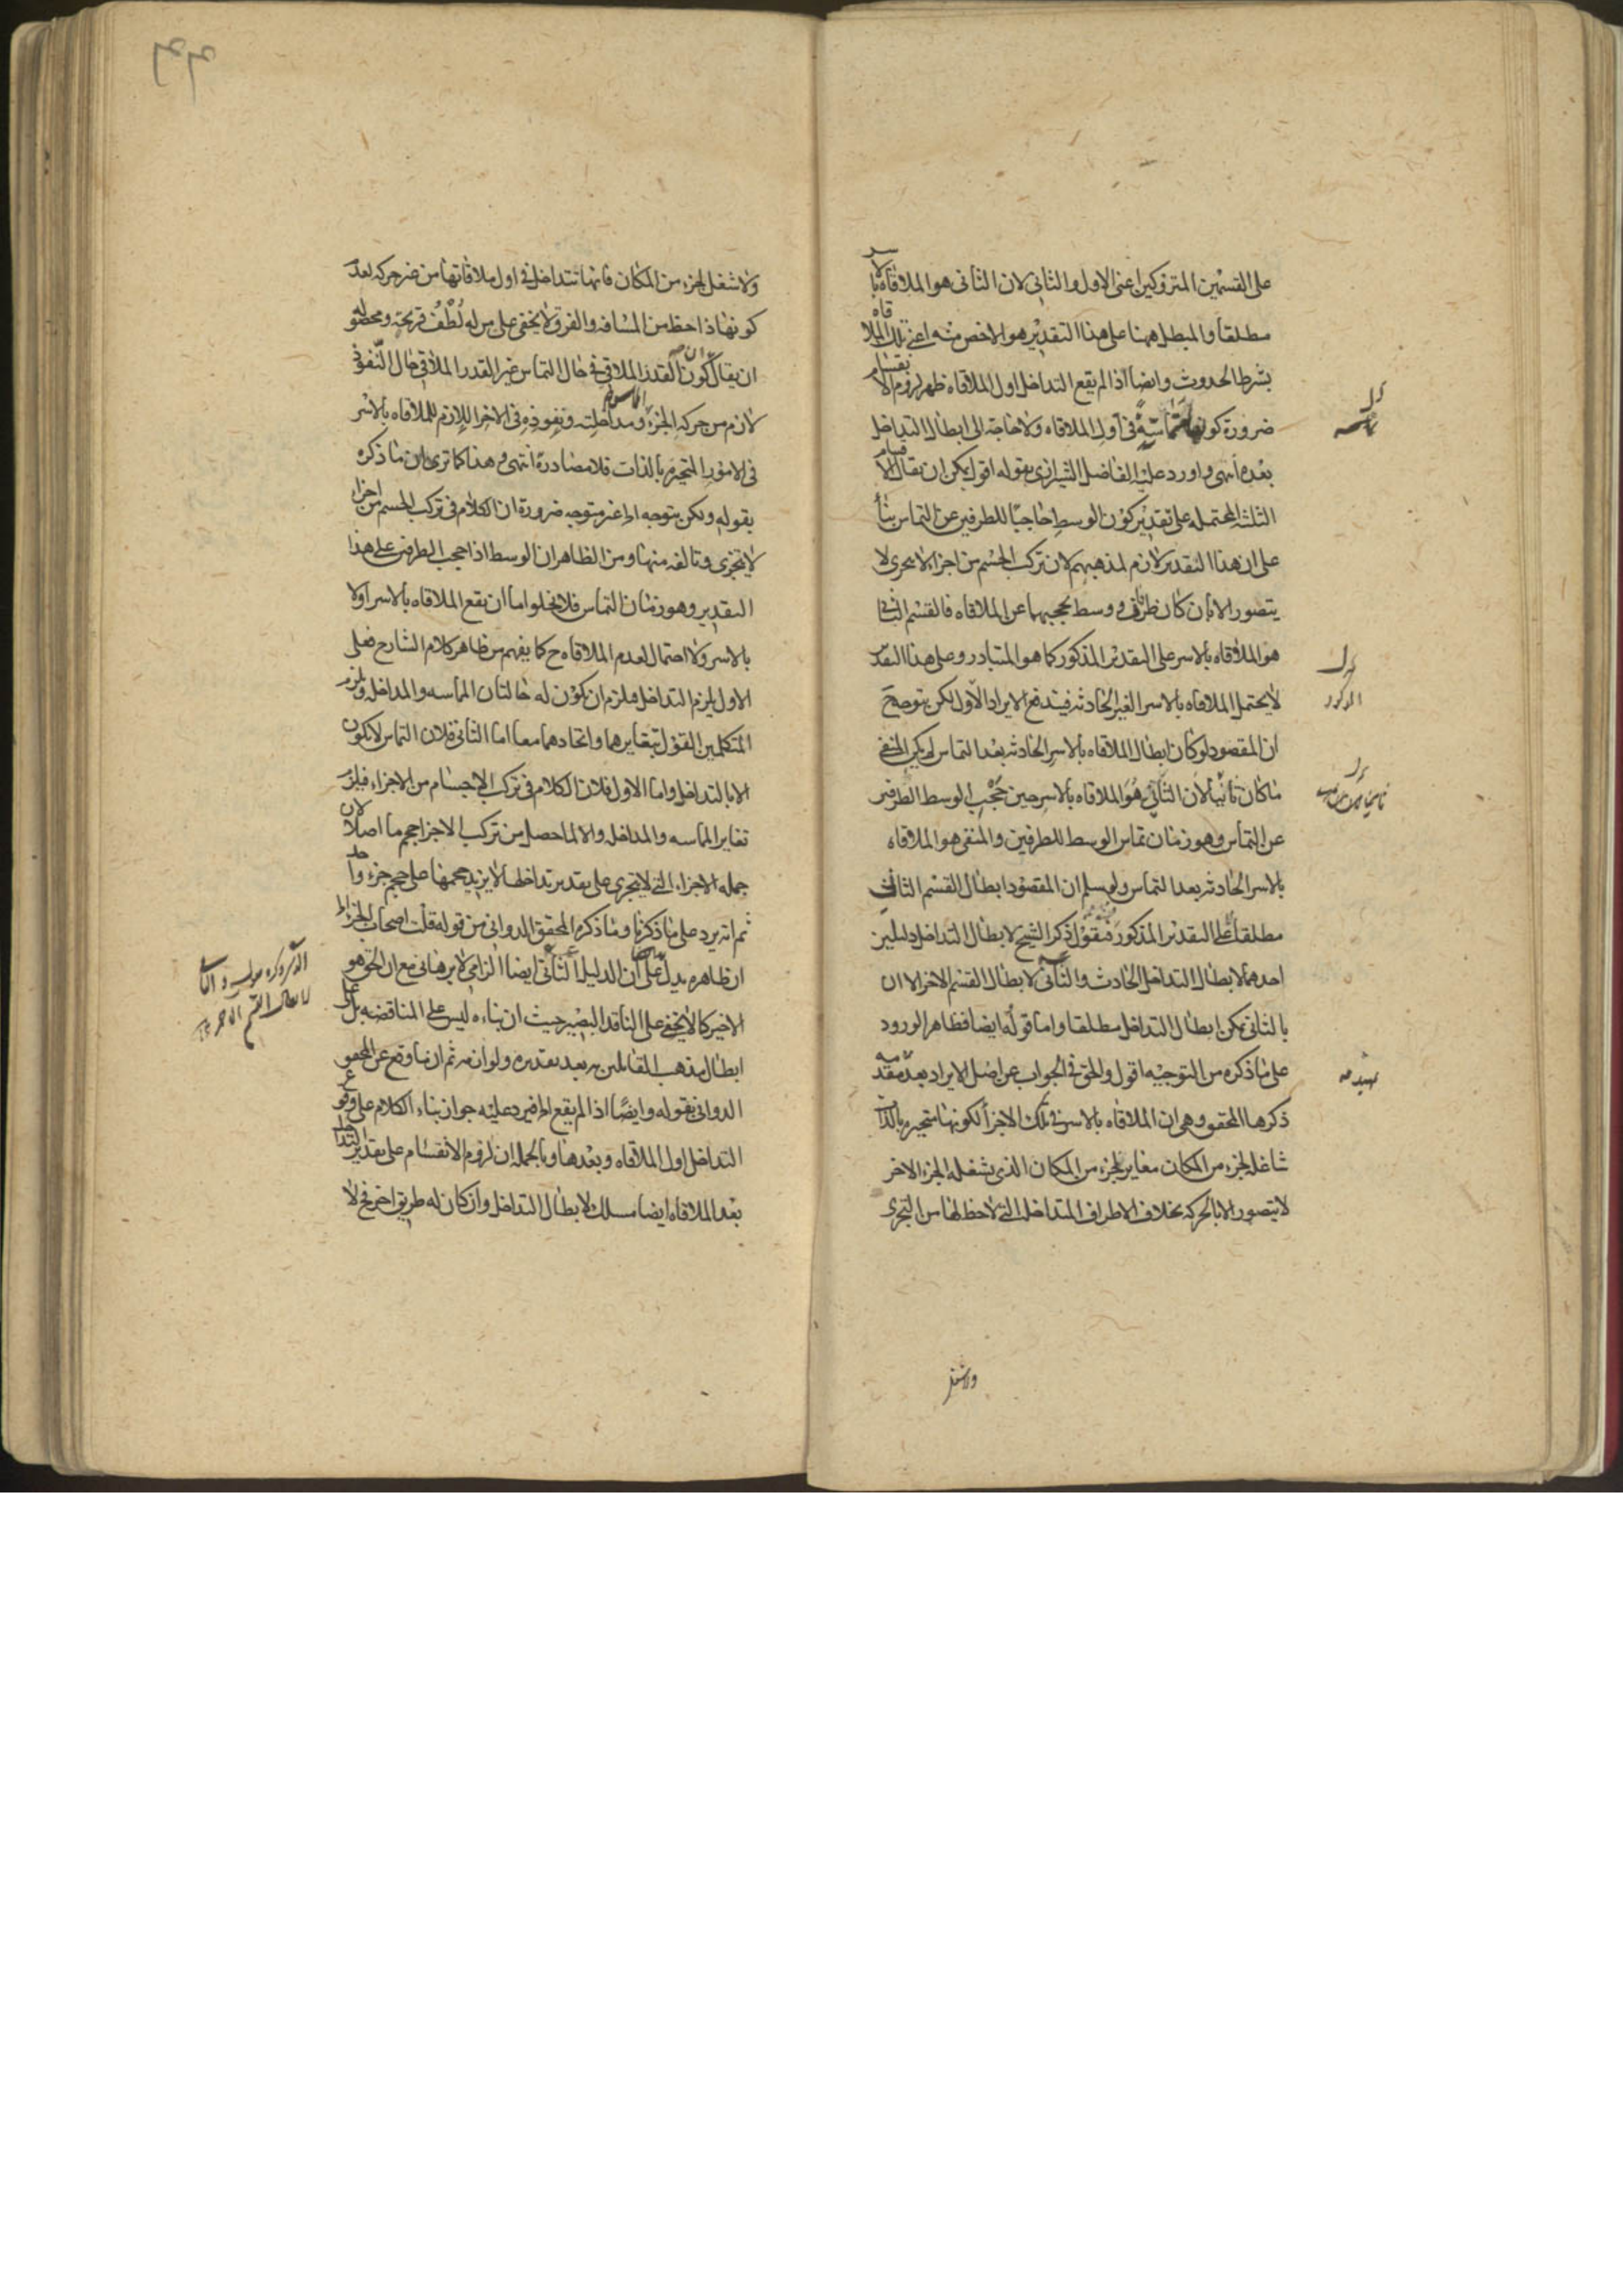 على القسمين المتروكين اعنى الاول والثانى لان الثانى هو الملاقاه بالاسر
مطلقا والمبطل ههنا على هذا التقدير هو الاخص منه اعنى تلك الملاقاه
بشرط الحدوث وايضا اذا لم يقع التداخل اول الملاقاه ظهر لزوم الانقسام
ضرورة كونها متماسة فى اول الملاقاه ولا حاجة الى ابطال التداخل
بعده انتهى واورد عليه الفاضل الشيرازى بقوله اقول يمكن ان يقال الاقسام
الثلثة المحتمله على تقدير كون الوسط حاجبا للطرفين عن التماس بناء
على ان هذا التقدير لازم لمذهبهم لان تركب الجسم من اجزاء لا يتجزى لا
يتصور الا بان كان طرفان و وسط يحجبهما عن الملاقاه فالقسم الثانى
هو الملاقاه بالاسر على التقدير المذكور كما هو المتبادر وعلى هذا التقدير
لا يحتمل الملاقاه بالاسر الغير الحادثه فيندفع الايراد الاول لكن يتوجه ح
ان المقصود لو كان ابطال الملاقاه بالاسر الحادثه بعد التماس لم يكن المنفى
ما كان ثانيا لان الثانى هو الملاقاه بالاسر حين حجب الوسط الطرفين
عن التماس وهو زمان تماس الوسط للطرفين والمنفى هو الملاقاه
بالاسر الحادثه بعد التماس ولو سلم ان المقصود ابطال القسم الثانى
مطلقا على التقدير المذكور فنقول ذكر الشيخ لابطال التداخل دليلين
احدهما لابطال التداخل الحادث والثانى لابطال القسم الاخر الا ان
بالثانى يمكن ابطال التداخل مطلقا واما قوله ايضا فظاهر الورود
على ما ذكره من التوجيه اقول والحق فى الجواب عن اصل الايراد بعد مقدمه
ذكرها المحقق وهى ان الملاقاه بالاسر فى تلك الاجزا لكونها متحيزه بالذات
شاغله لجزء من المكان مغاير لجزء من المكان الذى يشغله الجزء الاخر
لا يتصور الا بالحركه بخلاف الاطراف المتداخله التى لا حظ لها من التجزى
ولا شغل
ولا شغل لجزء من المكان فانها تتداخل فى اول ملاقاتها من غير حركه لعدم
كونها ذا حظ من المسافه والفرق لا يخفى على من له لطف قريحة ومحصوله
ان يقال كون القدر الملاقى فى حال التماس غير القدر الملاقى حال النفوذ
لازم من حركه الجزء ومداخلته ونفوذه فى الاخر اللازم للملاقاه بالاسر
فى الامور المتحيزه بالذات فلا مصادرة انتهى وهذا كما ترى ان ما ذكره
بقوله ولكن يتوجه الخ غير متوجه ضرورة ان الكلام فى تركب الجسم من اجزاء
لا يتجزى وتالفه منها ومن الظاهر ان الوسط اذا حجب الطرفين على هذا
التقدير وهو زمان التماس فلا يخلو اما ان يقع الملاقاه بالاسر اولا
بالاسر ولا احتمال لعدم الملاقاه ح كما يفهم من ظاهر كلام الشارح فعلى
الاول يلزم التداخل فلزم ان يكون له حالتان المماسه والمداخله ويلزم
المتكلمين القول بتغايرهما واتحادهما معا اما الثانى فلان التماس لا يكون
الا بالتداخل واما الاول فلان الكلام فى تركب الاجسام من الاجزاء فيلزم
تغاير المماسه والمداخله والا لما حصل من تركب الاجزا حجم ما اصلا لان
جمله الاجزاء التى لا يتجزى على تقدير تداخلها لا يزيد حجمها على حجم جزء واحد
ثم انه يرد على ما ذكرنا وما ذكره المحقق الدوانى من قوله قلت اصحاب الجزء الخ
ان ظاهره يدل على ان الدليل الثانى ايضا الزامى لا برهانى مع ان الحق هو
الاخير كما لا يخفى على الناقد البصير حيث ان بناءه ليس على المناقضه بل على
ابطال مذهب القائلين به بعد تقديره ولوازمه ثم ان ما وقع عن المحقق
الدوانى بقوله وايضا اذا لم يقع الخ فيرد عليه جواز بناء الكلام على وقوع
التداخل اول الملاقاه وبعدها وبالجمله ان لزوم الانقسام على تقدير التداخل
بعد الملاقاه ايضا مسلك لابطال التداخل وان كان له طريق اخر فح لا